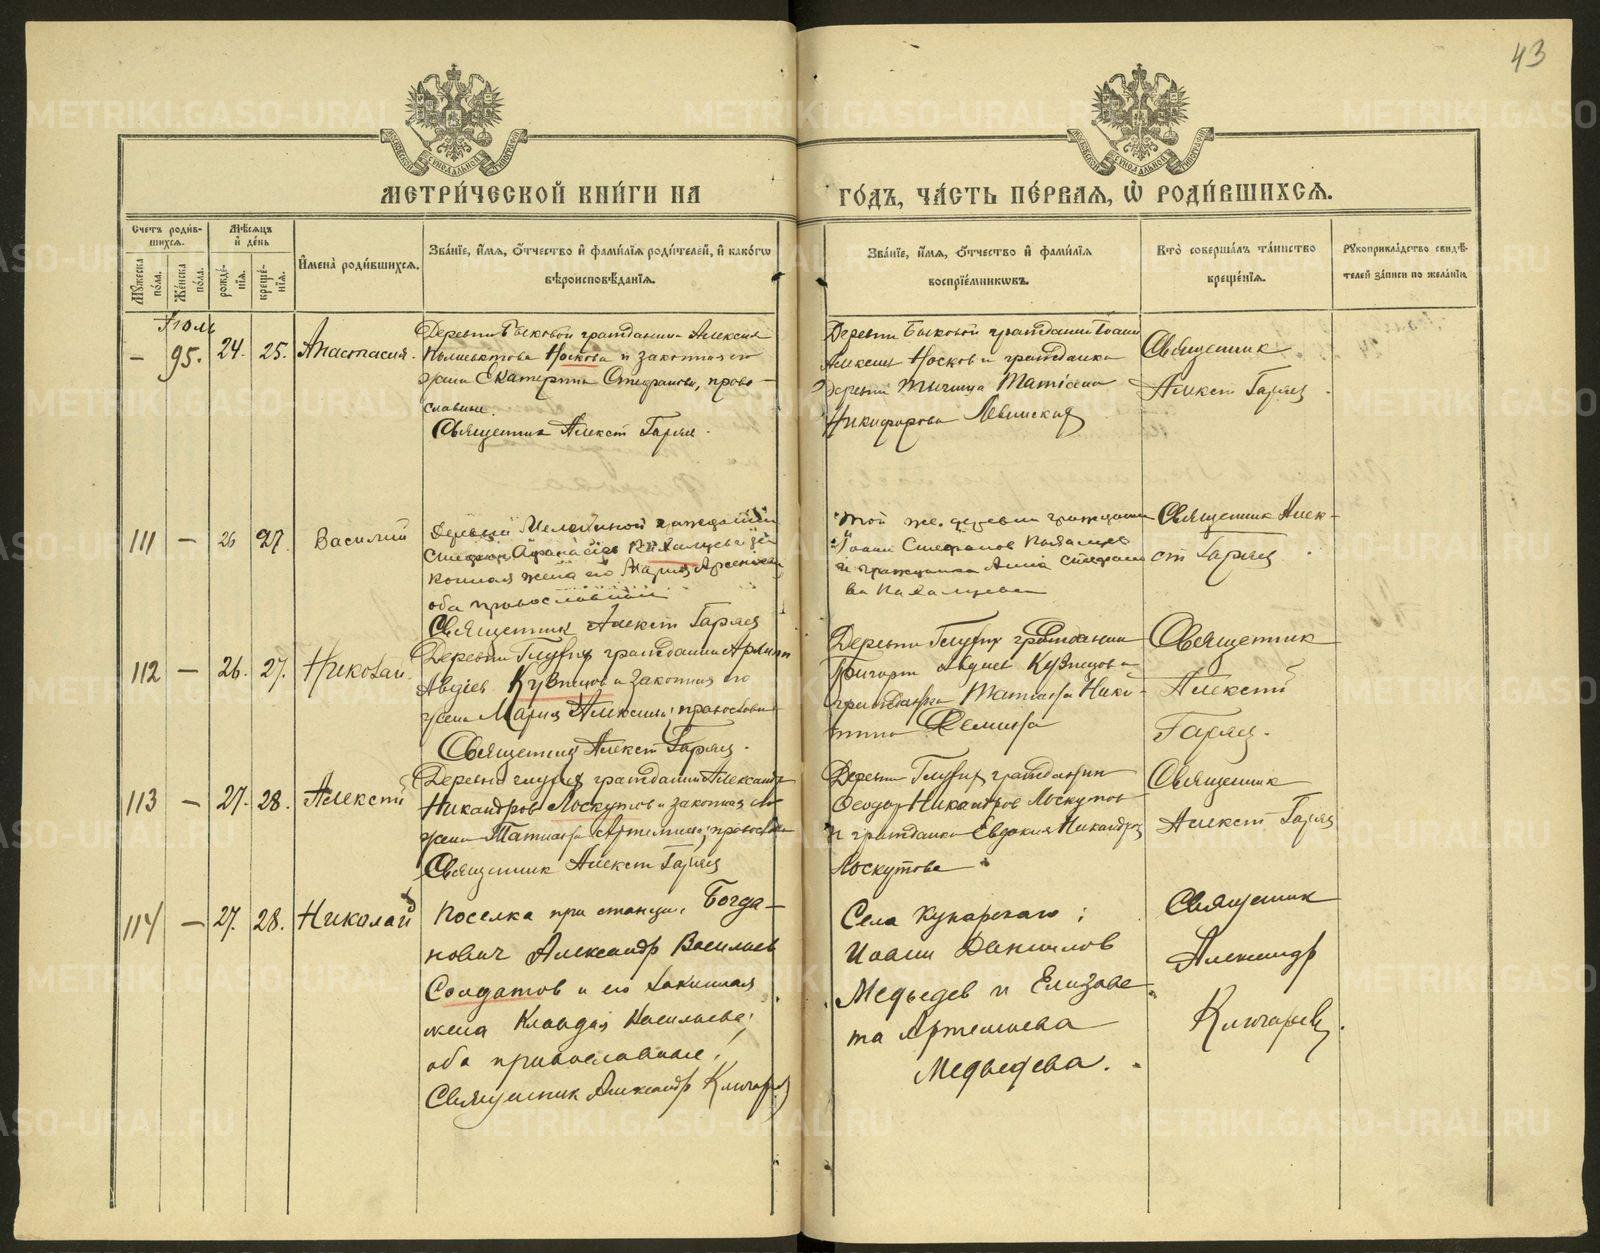 43
МЕТРИ́ЧЕСКОЙ КНИ́ГИ НА
ГО́ДЪ, ЧА́СТЬ ПЕ́РВАЯ, Ѡ҆ РОДИ́ВШИХСѦ.
Сче́тъ роди́в-
шихся.
Мѣ́сяцъ
и҆ де́нь
И҆мена̀ роди́вшихся.
Зва́нїе, и҆́мя, ѻ҆́тчество и҆ фами́лїя роди́телей, и҆ како́гѡ
вѣроисповѣ́данїя.
Зва́нїе, и҆́мя, ѻ҆́тчество и҆ фами́лїя
воспрїе́мникѡвъ.
Кто̀ соверша́лъ та́инство
креще́нїя.
Рукоприкла́дство свидѣ́-
телей за́писи по жела́нїю.
Му́жеска
по́ла.
Же́нска
по́ла.
рожде́-
нїя.
креще́-
нїя.
Июль
— 95. 24. 25. Анастасия.
Деревни Быковой гражданин Алексий
Носков и законная его
жена Екатерина Стефанова, право-
славные.
Священник Алексей Гаряев.
Деревни Быковой гражданин Иоанн
Алексиев Носков и гражданка
деревни
Никифорова
Священник
Алексей Гаряев
111 — 26 27. Василий
Деревни гражданин
Стефан Афанасиев за
конная жена его Мария Арсеньева
оба православные
Священник Алексей Гаряев
Той же деревни гражданин
Иоанн Стефанов
и гражданка Анна Стефано
ва
Священник Алек-
сей Гаряев
112 — 26. 27. Николай.
Деревни Глухих гражданин
Авдиев Кузнецов и законная его
жена Мария Алексиева, православные
Священник Алексей Гаряев.
Деревни Глухих гражданин
Григорий Авдиев Кузнецов и
гражданка Татиана Ники-
тина Демина
Священник
Алексей
Гаряев.
113 — 27. 28. Алексей
Деревни Глухих гражданин Александр
Никандров Лоскутов и законная его
жена Татиана Артемиева, православные
Священник Алексей Гаряев
Деревни Глухих гражданин
Феодор Никандров Лоскутов
и гражданка Евдокия Никандрова
Лоскутова
Священник
Алексей Гаряев
114 — 27. 28. Николай
Поселка при станции Богда-
нович Александр Васильев
Солдатов и его законная
жена Клавдия Васильева;
оба православные;
Священник Александр Ключарев
Села Кунарского;
Иоанн Данилов
Медведев и Елизаве-
та Артемиева
Медведева.
Священник
Александр
Ключарев.